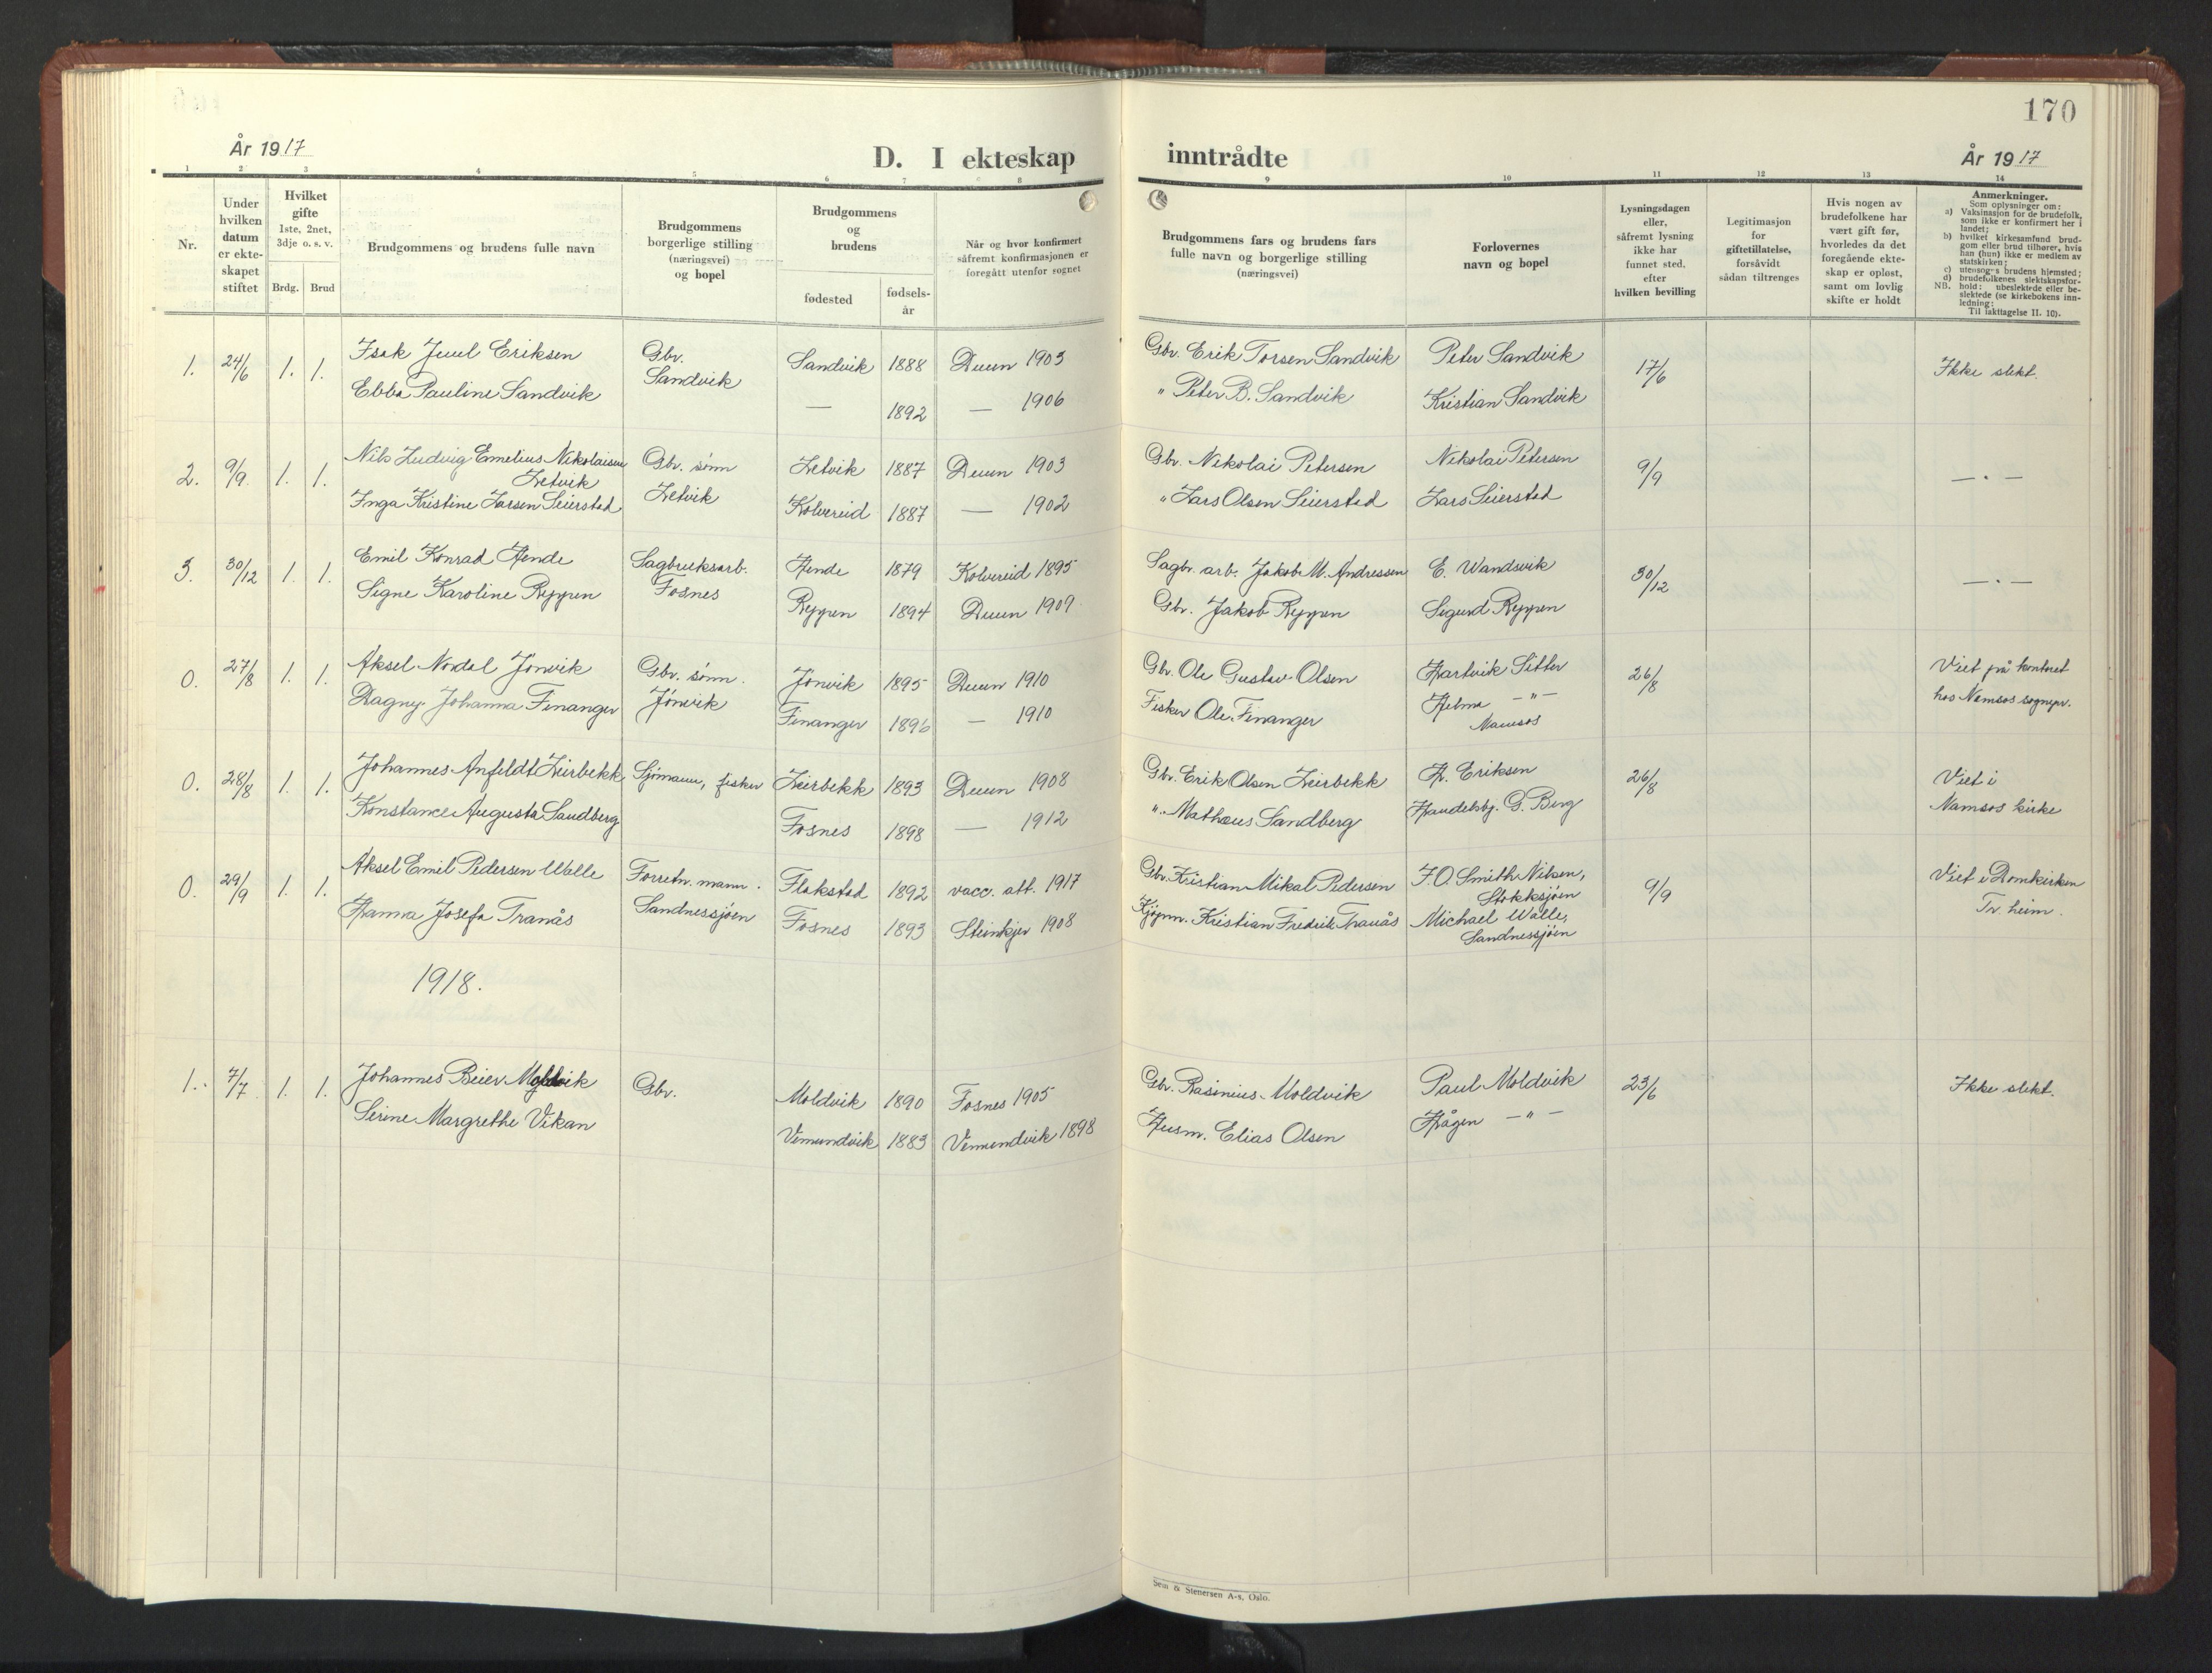 170
År 1917
D. I ekteskap
inntrådte
År 1917
1 2 3 4 5 6 7 8 9 10 11 12 13 14
Nr.
Under
hvilken
datum
er ekte-
skapet
stiftet
Hvilket
gifte
1ste, 2net,
3dje o. s. v.
Brdg. Brud
Brudgommens og brudens fulle navn
Brudgommens
borgerlige stilling
(næringsvei)
og bopel
Brudgommens
og
brudens
fødested
fødsels-
år
Når og hvor konfirmert
såfremt konfirmasjonen er
foregått utenfor sognet
Brudgommens fars og brudens fars
fulle navn og borgerlige stilling
(næringsvei)
Forlovernes
navn og bopel
Lysningsdagen
eller,
såfremt lysning
ikke har
funnet sted,
efter
hvilken bevilling
Legitimasjon
for
giftetillatelse,
forsåvidt
sådan tiltrenges
Hvis nogen av
brudefolkene har
vært gift før,
hvorledes da det
foregående ekte-
skap er opløst,
samt om lovlig
skifte er holdt
Anmerkninger.
Som oplysninger om:
a) Vaksinasjon for de brudefolk,
som ikke er konfirmert her i
landet;
b) hvilket kirkesamfund brud-
gom eller brud tilhører, hvis
han (hun) ikke er medlem av
statskirken;
c) utensogns brudens hjemsted;
d) brudefolkenes slektskapsfor-
hold: ubeslektede eller be-
NB. slektede (se kirkebokens inn-
ledning:
Til iakttagelse II. 10).
1. 24/6 1. 1. Isak Juul Eriksen Gbr. Sandvik 1888 Duun 1903 Gbr. Erik Torsen Sandvik Peter Sandvik 17/6 Ikke slekt.
Ebba Pauline Sandvik Sandvik — 1892 — 1906 " Peter B. Sandvik Kristian Sandvik
2. 9/9 1. 1. Nils Ludvig Emelius Nikolaisen Gbr. sønn Letvik 1887 Duun 1903 Gbr. Nikolai Petersen Nikolai Petersen 9/9 — " —
Letvik Letvik
Inga Kristine Larsen Seierstad Kolvereid 1887 — 1902 " Lars Olsen Seierstad Lars Seierstad
3. 30/12 1. 1. Emil Konrad Hende Sagbruksarb. Hende 1879 Kolvereid 1895 Sagbr. arb. Jakob M. Andressen E. Wandsvik 30/12 — " —
Signe Karoline Ryppen Fosnes Ryppen 1894 Duun 1909 Gbr. Jakob Ryppen Sigurd Ryppen
0. 27/8 1. 1. Aksel Nordal Jønvik Gbr. sønn. Jønvik 1895 Duun 1910 Gbr. Ole Gustav Olsen Hartvik Sitter 26/8 Viet på kontoret
Dagny Johanna Finanger Jønvik Finanger 1896 — 1910 Fisker Ole Finanger Helma — " — hos Namsos sognepr.
Namsos
0. 28/8 1. 1. Johannes Anfeldt Leirbekk Sjømann, fisker Leirbekk 1893 Duun 1908 Gbr. Erik Olsen Leirbekk H. Eriksen 26/8 Viet i
Konstance Augusta Sandberg Fosnes 1898 — 1912 " Mathæus Sandberg Handelsbg. G. Berg Namsos kirke
0. 29/9 1. 1. Aksel Emil Pedersen Walle Forretn. mann. Flakstad 1892 vacc. att. 1917 Gbr. Kristian Mikal Pedersen F.O. Smith Nilsen, 9/9 Viet i Domkirken
Stokksjøen
Hanna Josefa Tranås Sandnessjøen Fosnes 1893 Steinkjer 1908 Kjøpm. Kristian Fredrik Tranås Michael Walle, Tr. heim.
Sandnessjøen
1918.
1. 7/7 1. 1. Johannes Beier Moldvik Gbr. Moldvik 1890 Fosnes 1905 Gbr. Rasinius Moldvik Paul Moldvik 23/6 Ikke slekt.
Serine Margrethe Vikan Vemundvik 1883 Vemundvik 1898 Husm. Elias Olsen Hågen — " —
Sem & Stenersen A-s, Oslo.